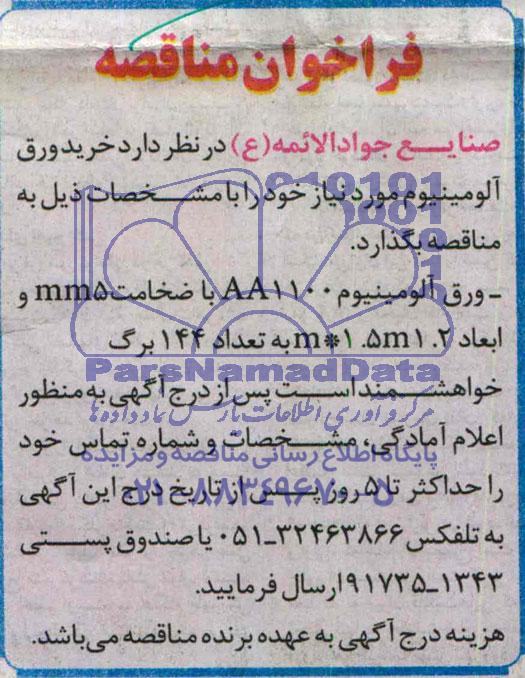 فراخوان مناقصه
صنایع جوادالائمه(ع) در نظر دارد خرید ورق
آلومینیوم مورد نیاز خود را با مشخصات ذیل به
مناقصه بگذارد.
- ورق آلومینیوم AA۱۱۰۰ با ضخامت mm۵ و
ابعاد m*۱.۵m۱.۲ به تعداد ۱۴۴ برگ
ParsNamadData
خواهشمند است پس از درج آگهی به منظور
مرکز فرآوری اطلاعات پارس نماد داده ها
اعلام آمادگی، مشخصات و شماره تماس خود
پایگاه اطلاع رسانی مناقصه و مزایده
را حداکثر تا ۵ روز پس از تاریخ درج این آگهی
۰۲۱-۸۸۳۴۹۶۷۰-۵
به تلفکس ۳۲۴۶۳۸۶۶-۰۵۱ یا صندوق پستی
۱۳۴۳-۹۱۷۳۵ ارسال فرمایید.
هزینه درج آگهی به عهده برنده مناقصه می‌باشد.